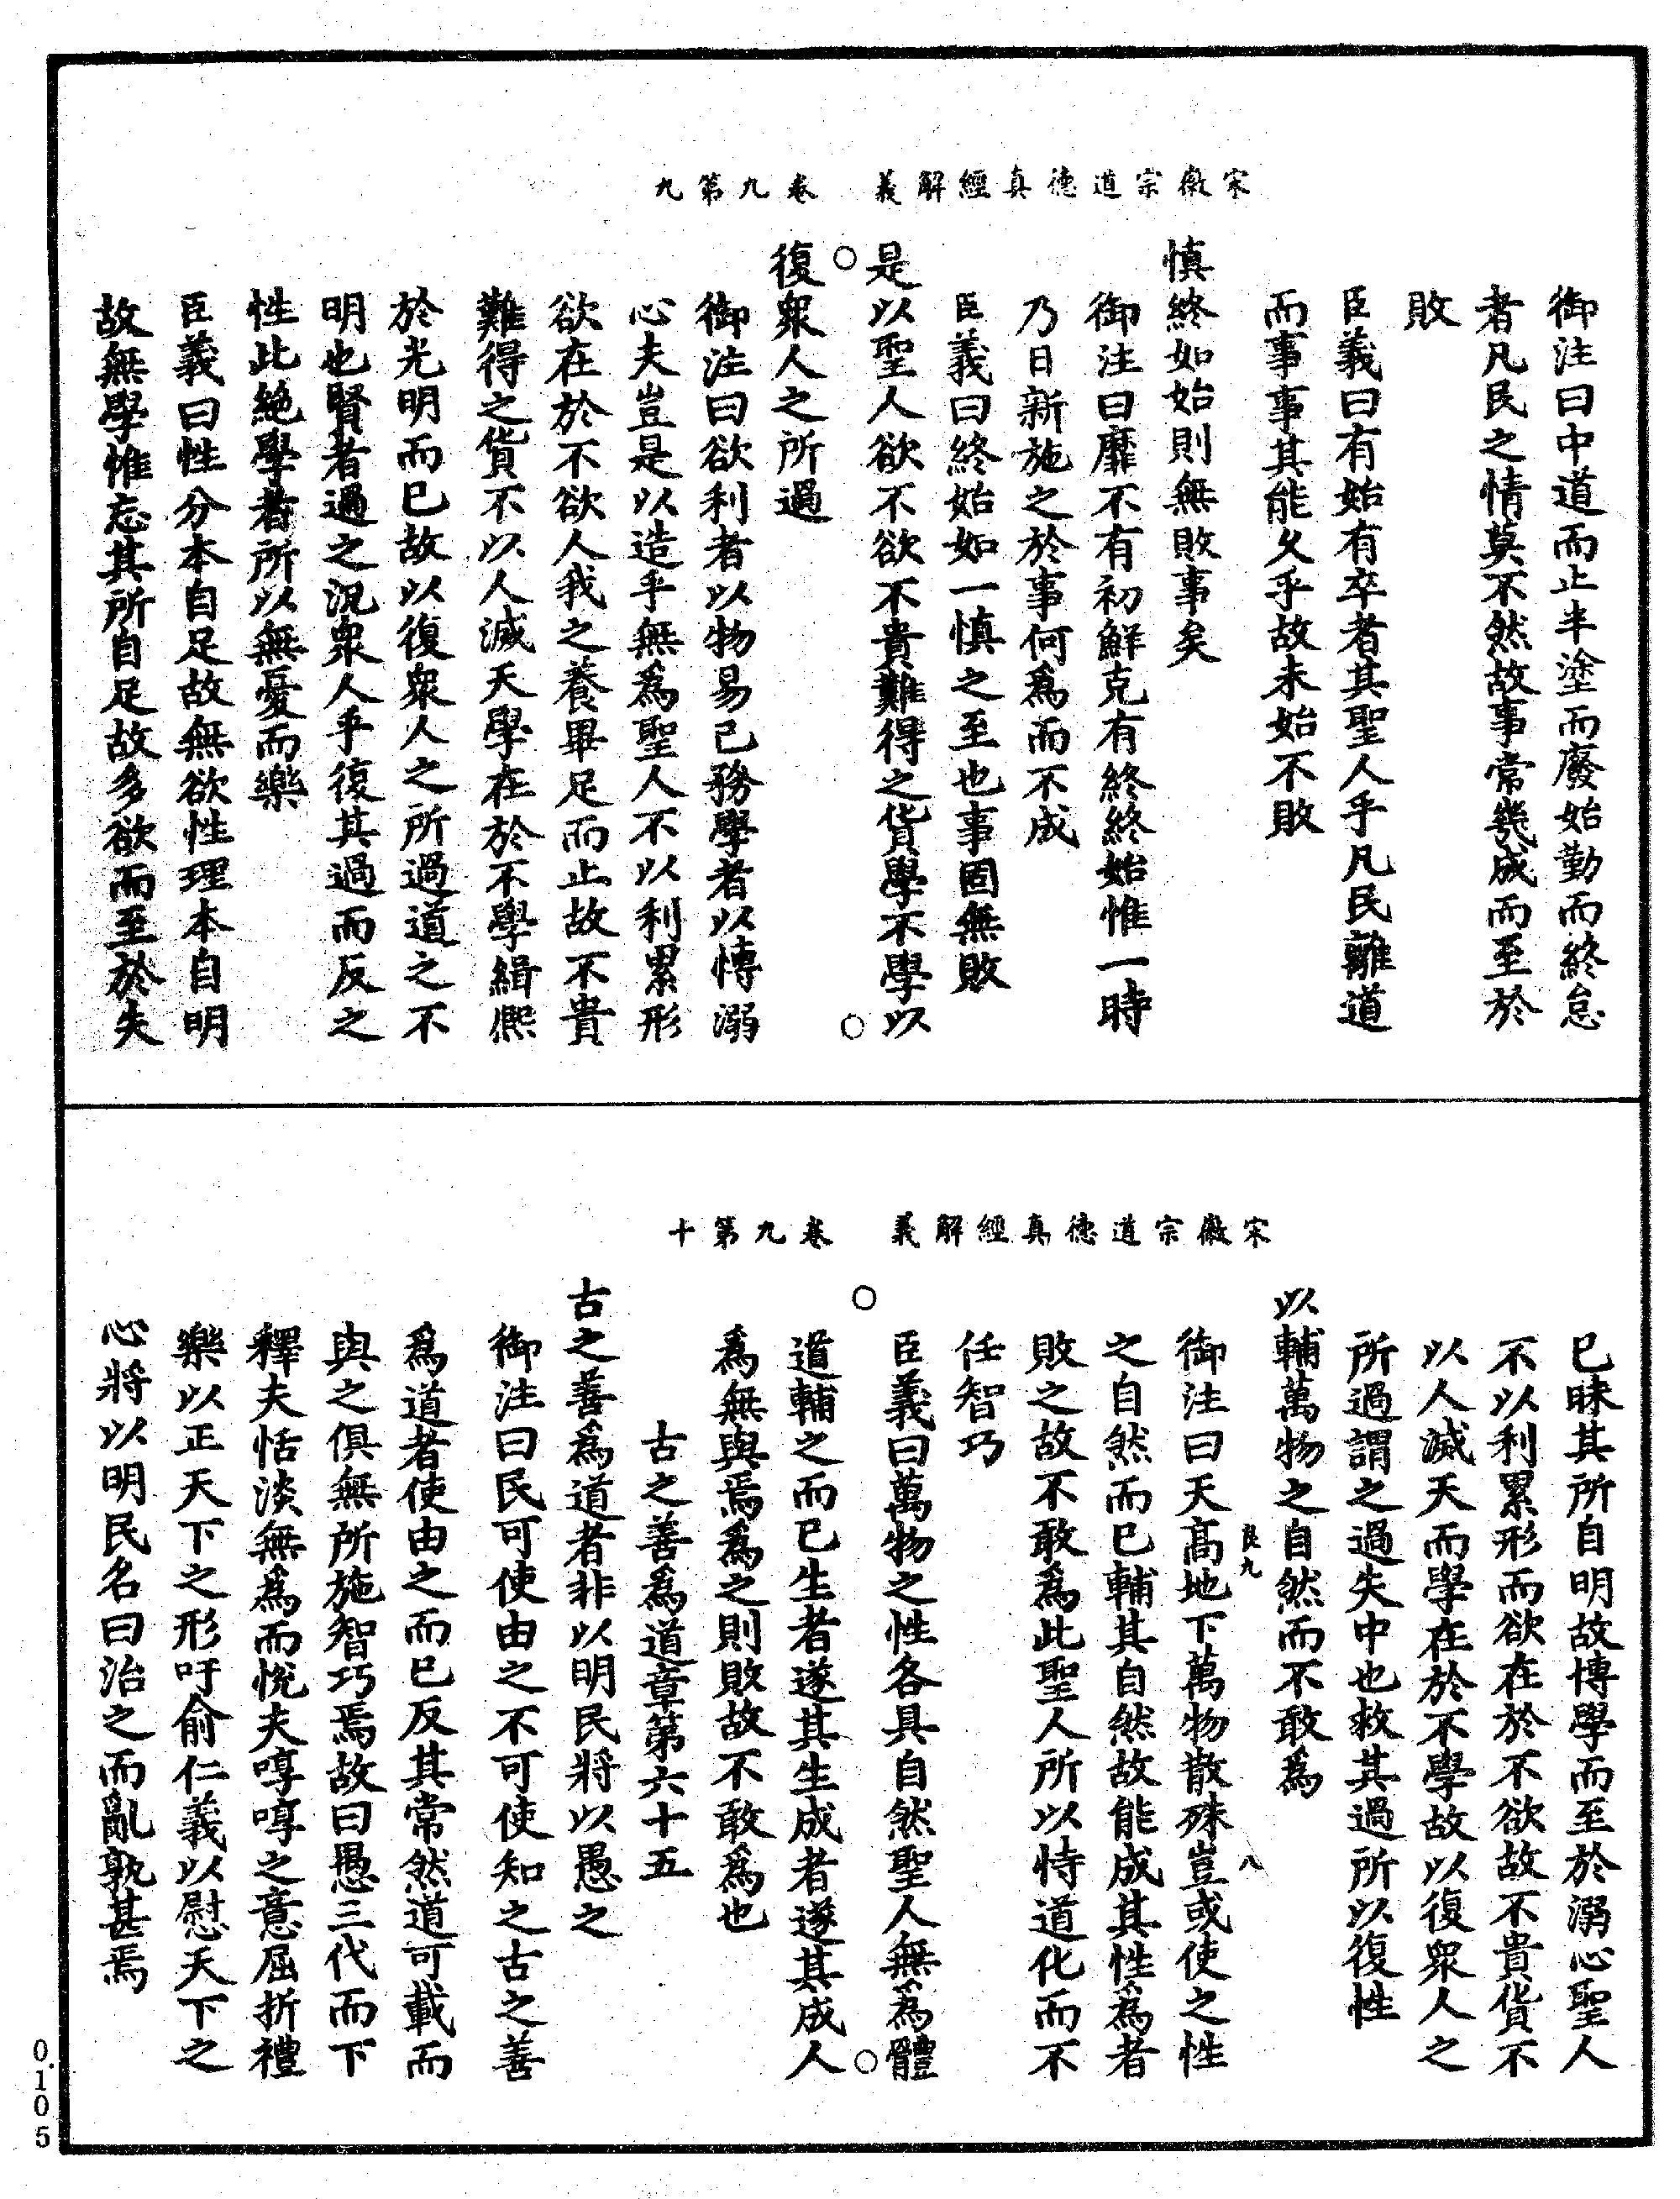 宋徽宗道德真經解義　卷九第九
御注曰中道而止半塗而廢始勤而終怠
者凡民之情莫不然故事常幾成而至於
敗
臣義曰有始有卒者其聖人乎凡民離道
而事事其能久乎故未始不敗
慎終如始則無敗事矣
御注曰靡不有初鮮克有終終始惟一時
乃日新施之於事何為而不成
臣義曰終始如一慎之至也事固無敗
是以聖人欲不欲不貴難得之貨學不學以
復衆人之所過
御注曰欲利者以物易己務學者以博溺
心夫豈是以造乎無為聖人不以利累形
欲在於不欲人我之養畢足而止故不貴
難得之貨不以人滅天學在於不學緝熙
於光明而已故以復衆人之所過道之不
明也賢者過之況衆人乎復其過而反之
性此絶學者所以無憂而樂
臣義曰性分本自足故無欲性理本自明
故無學惟忘其所自足故多欲而至於失
宋徽宗道德真經解義　卷九第十
已昧其所自明故博學而至於溺心聖人
不以利累形而欲在於不欲故不貴貨不
以人滅天而學在於不學故以復衆人之
所過謂之過失中也救其過所以復性
以輔萬物之自然而不敢為
良九　八
御注曰天髙地下萬物散殊豈或使之性
之自然而已輔其自然故能成其性為者
敗之故不敢為此聖人所以恃道化而不
任智巧
臣義曰萬物之性各具自然聖人無為體
道輔之而已生者遂其生成者遂其成人
為無與焉為之則敗故不敢為也
古之善為道章第六十五
古之善為道者非以明民將以愚之
御注曰民可使由之不可使知之古之善
為道者使由之而已反其常然道可載而
與之俱無所施智巧焉故曰愚三代而下
釋夫恬淡無為而悅夫啍啍之意屈折禮
樂以正天下之形吁俞仁義以慰天下之
心將以明民名曰治之而亂孰甚焉
0.105